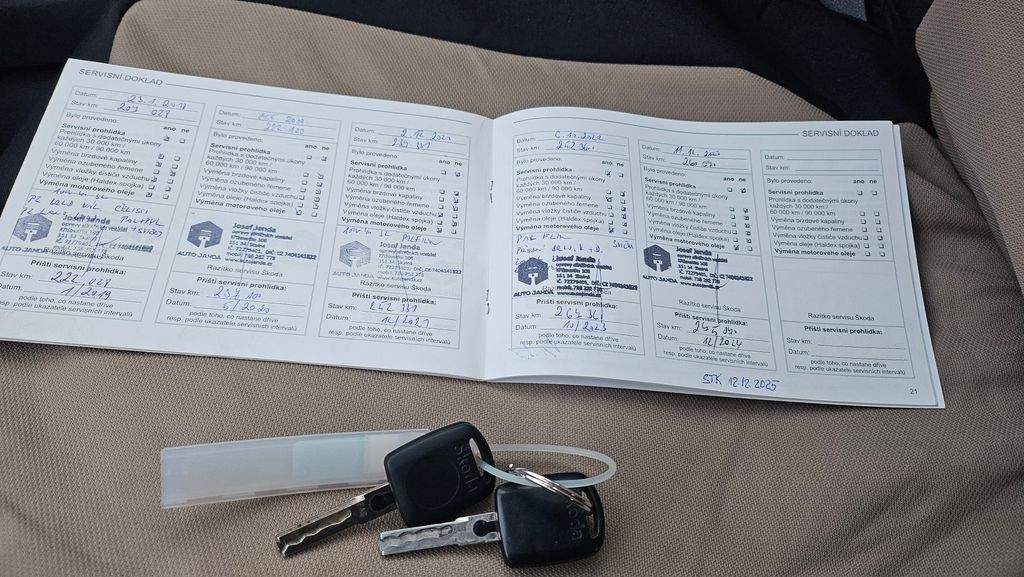 SERVISNÍ DOKLAD
Datum: 23. 1. 2018
Stav km: 207 028
Bylo provedeno:
ano ne
Servisní prohlídka
Prohlídka s dodatečnými úkony
každých 30 000 km /
60 000 km / 90 000 km
Výměna brzdové kapaliny
Výměna ozubeného řemene
Výměna vložky čističe vzduchu
Výměna oleje (Haldex spojka)
Výměna motorového oleje
Josef Janda
AUTO JANDA
Příští servisní prohlídka:
Stav km: 222 028
Datum: 1/2019
podle toho, co nastane dříve
resp. podle ukazatele servisních intervalů
Datum: 2019
Stav km: 222 100
Bylo provedeno:
ano ne
Servisní prohlídka
Prohlídka s dodatečnými úkony
každých 30 000 km /
60 000 km / 90 000 km
Výměna brzdové kapaliny
Výměna ozubeného řemene
Výměna vložky čističe vzduchu
Výměna oleje (Haldex spojka)
Výměna motorového oleje
Josef Janda
opravy silničních vozidel
151 34 Skalná
IČ: 72279405, DIČ: CZ 7404141822
mobil: 736 252 778
www.autojanda.cz
AUTO JANDA
Razítko servisu Škoda
Příští servisní prohlídka:
Stav km: 237 100
Datum: 5/2020
podle toho, co nastane dříve
resp. podle ukazatele servisních intervalů
Datum: 2. 12. 2020
Stav km:
Bylo provedeno:
ano ne
Servisní prohlídka
Prohlídka s dodatečnými úkony
každých 30 000 km /
60 000 km / 90 000 km
Výměna brzdové kapaliny
Výměna ozubeného řemene
Výměna vložky čističe vzduchu
Výměna oleje (Haldex spojka)
Výměna motorového oleje
Josef Janda
AUTO JANDA
Razítko servisu Škoda
Příští servisní prohlídka:
Stav km: 252 331
Datum: 12/2021
podle toho, co nastane dříve
resp. podle ukazatele servisních intervalů
SERVISNÍ DOKLAD
Datum:
Stav km:
Bylo provedeno:
ano ne
Servisní prohlídka
Prohlídka s dodatečnými úkony
každých 30 000 km /
60 000 km / 90 000 km
Výměna brzdové kapaliny
Výměna ozubeného řemene
Výměna vložky čističe vzduchu
Výměna oleje (Haldex spojka)
Výměna motorového oleje
Josef Janda
opravy silničních vozidel
151 34 Skalná
IČ: 72279405, DIČ: CZ 7404141822
mobil: 736 252 778
www.autojanda.cz
AUTO JANDA
Příští servisní prohlídka:
Stav km:
Datum: 10/2023
podle toho, co nastane dříve
resp. podle ukazatele servisních intervalů
Datum: 11. 11.
Stav km:
Bylo provedeno:
ano ne
Servisní prohlídka
Prohlídka s dodatečnými úkony
každých 30 000 km /
60 000 km / 90 000 km
Výměna brzdové kapaliny
Výměna ozubeného řemene
Výměna vložky čističe vzduchu
Výměna oleje (Haldex spojka)
Výměna motorového oleje
Josef Janda
opravy silničních vozidel
151 34 Skalná
IČ: 72279405, DIČ: CZ 7404141822
mobil: 736 252 778
www.autojanda.cz
AUTO JANDA
Razítko servisu Škoda
Příští servisní prohlídka:
Stav km:
Datum: 12/2024
podle toho, co nastane dříve
resp. podle ukazatele servisních intervalů
Datum:
Stav km:
Bylo provedeno:
ano ne
Servisní prohlídka
Prohlídka s dodatečnými úkony
každých 30 000 km /
60 000 km / 90 000 km
Výměna brzdové kapaliny
Výměna ozubeného řemene
Výměna vložky čističe vzduchu
Výměna oleje (Haldex spojka)
Výměna motorového oleje
Razítko servisu Škoda
Příští servisní prohlídka:
Stav km:
Datum:
podle toho, co nastane dříve
resp. podle ukazatele servisních intervalů
STK 12.12.2025
21
Škoda
Škoda